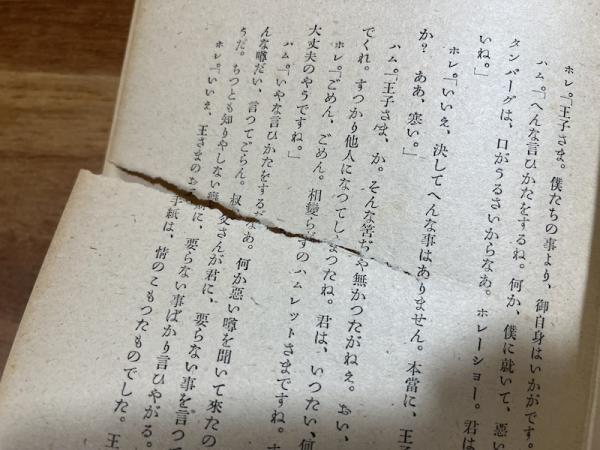 ホレ。「王子さま。僕たちの事より、御自身はいかがです。
ハム。「へんな言ひかたをするね。何か、僕に就いて、悪い
タンバーグは、口がうるさいからなあ。ホレーショー。君は
いね。」
ホレ。「いいえ、決してへんな事はありません。本當に、王子
か？ ああ、寒い。」
ハム。「王子さま、か。そんな筈ぢや無かつたがねえ。おい、
でくれ。すつかり他人になつてしまつたね。君は、いつたい、何
ホレ。「ごめん、ごめん。相變らずのハムレットさまですね。
大丈夫のやうですね。」
ハム。「いやな言ひかたをするなあ。何か悪い噂を聞いて來たの
んな噂だい、言つてごらん。叔父さんが君に、要らない事を言つて
うだ。ちつとも知りやしない癖に、要らない事ばかり言ひやがる。
ホレ。「いいえ、王さまのお手紙は、情のこもつたものでした。王